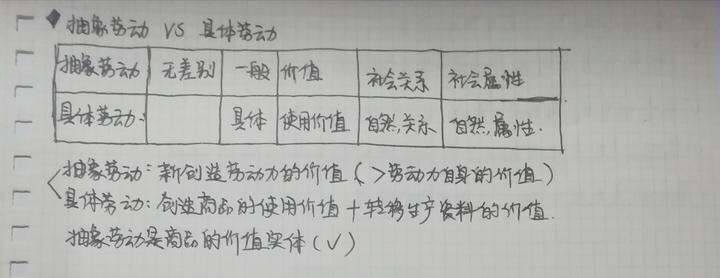 ◆ 抽象劳动 VS 具体劳动
抽象劳动 无差别 一般 价值 社会关系 社会属性
具体劳动. 具体 使用价值 自然,关系 自然,属性.
抽象劳动:新创造劳动力的价值(>劳动力自身的价值)
具体劳动:创造商品的使用价值+转移生产资料的价值.
抽象劳动是商品的价值实体(√)